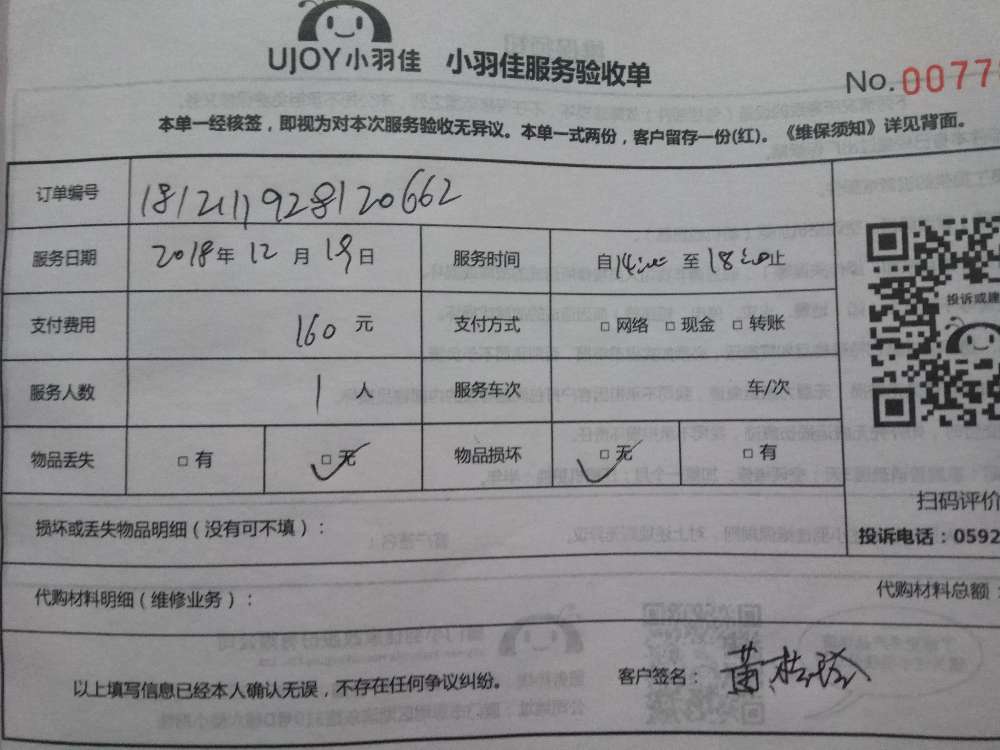 UJOY小羽佳 小羽佳服务验收单
No.0077
本单一经核签，即视为对本次服务验收无异议。本单一式两份，客户留存一份(红)。《维保须知》详见背面。
订单编号 181211928120662
服务日期 2018年12月19日 服务时间 自14:00至18:00止
支付费用 160元 支付方式 □网络 □现金 □转账
服务人数 1人 服务车次 车/次
投诉或建
物品丢失 □有 □无 物品损坏 □无 □有
扫码评价
损坏或丢失物品明细（没有可不填）：
投诉电话：0592
代购材料明细（维修业务）： 代购材料总额：
以上填写信息已经本人确认无误，不存在任何争议纠纷。 客户签名：